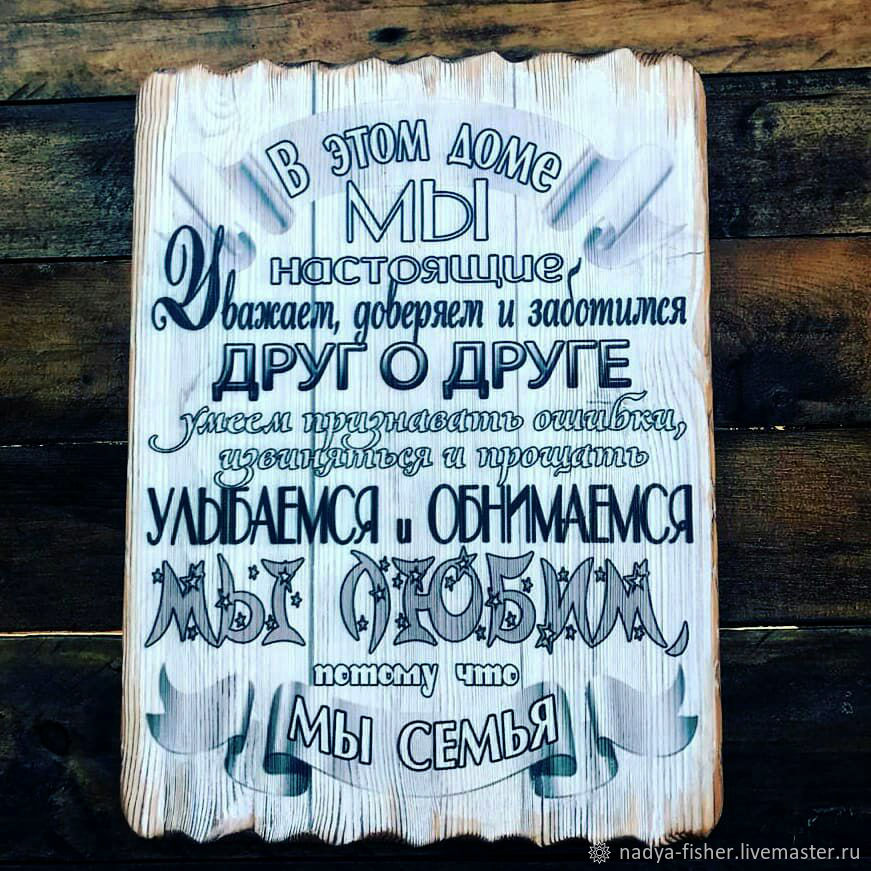 В ЭТОМ ДОМЕ
МЫ
настоящие
Уважаем, доверяем и заботимся
ДРУГ О ДРУГЕ
умеем признавать ошибки,
извиняться и прощать
УЛЫБАЕМСЯ и ОБНИМАЕМСЯ
МЫ ЛЮБИМ,
потому что
МЫ СЕМЬЯ
nadya-fisher.livemaster.ru